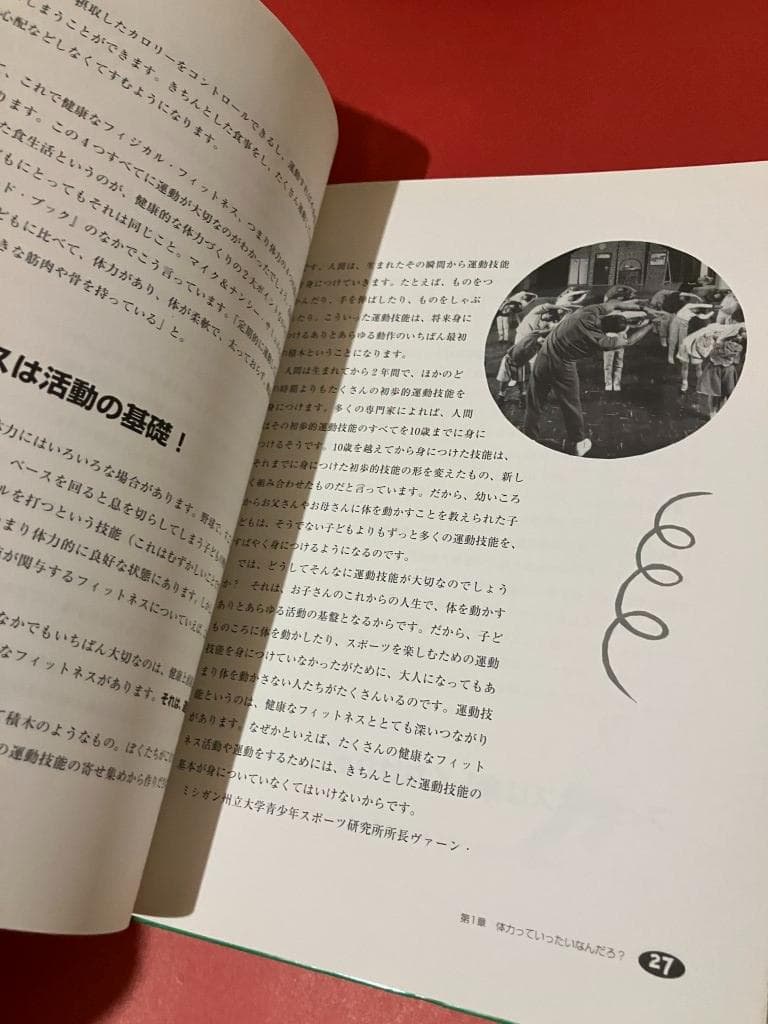 摂取したカロリーをコントロールできるし、運動すれば
しまうことができます。きちんとした食事をし、たくさん運動
心配などしなくてすむようになります。
て、これで健康なフィジカル・フィットネス、つまり体力の4つの
ります。この4つすべてに運動が大切なのがわかったでしょう。
た食生活というのが、健康的な体力づくりの2大ポイント
どもにとってもそれは同じこと。マイク&ナンシー・サ
ド・ブック』のなかでこう言っています。「定期的に運動
どもに比べて、体力があり、体が柔軟で、太っておらず、
きな筋肉や骨を持っている」と。
スは活動の基礎!
体力にはいろいろな場合があります。野球で、
ベースを回ると息を切らしてしまう子ども
ルを打つという技能(これはむずかしいこと
まり体力的に良好な状態にあります。しかし
が関与するフィットネスについていえば、
なかでもいちばん大切なのは、健康
なフィットネスがあります。それは、
て積木のようなもの。ぼくたちが
の運動技能の寄せ集めから作りだ
です。人間は、生まれたその瞬間から運動技能
身につけていきます。たとえば、ものをつ
かんだり、手を伸ばしたり、ものをしゃぶ
たり。こういった運動技能は、将来身に
つけるありとあらゆる動作のいちばん最初
の積木ということになります。
人間は生まれてから2年間で、ほかのど
の時期よりもたくさんの初歩的運動技能を
身につけます。多くの専門家によれば、人間
はその初歩的運動技能のすべてを10歳までに身に
つけるそうです。10歳を越えてから身につけた技能は、
それまでに身につけた初歩的技能の形を変えたもの、新し
く組み合わせたものだと言っています。だから、幼いころ
からお父さんやお母さんに体を動かすことを教えられた子
どもは、そうでない子どもよりもずっと多くの運動技能を、
すばやく身につけるようになるのです。
では、どうしてそんなに運動技能が大切なのでしょう
か? それは、お子さんのこれからの人生で、体を動かす
ありとあらゆる活動の基盤となるからです。だから、子ど
ものころに体を動かしたり、スポーツを楽しむための運動
技能を身につけていなかったがために、大人になってもあ
まり体を動かさない人たちがたくさんいるのです。運動技
能というのは、健康なフィットネスととても深いつながり
があります。なぜかといえば、たくさんの健康なフィット
ネス活動や運動をするためには、きちんとした運動技能の
基本が身についていなくてはいけないからです。
ミシガン州立大学青少年スポーツ研究所所長ヴァーン・
第1章 体力っていったいなんだろ?
27